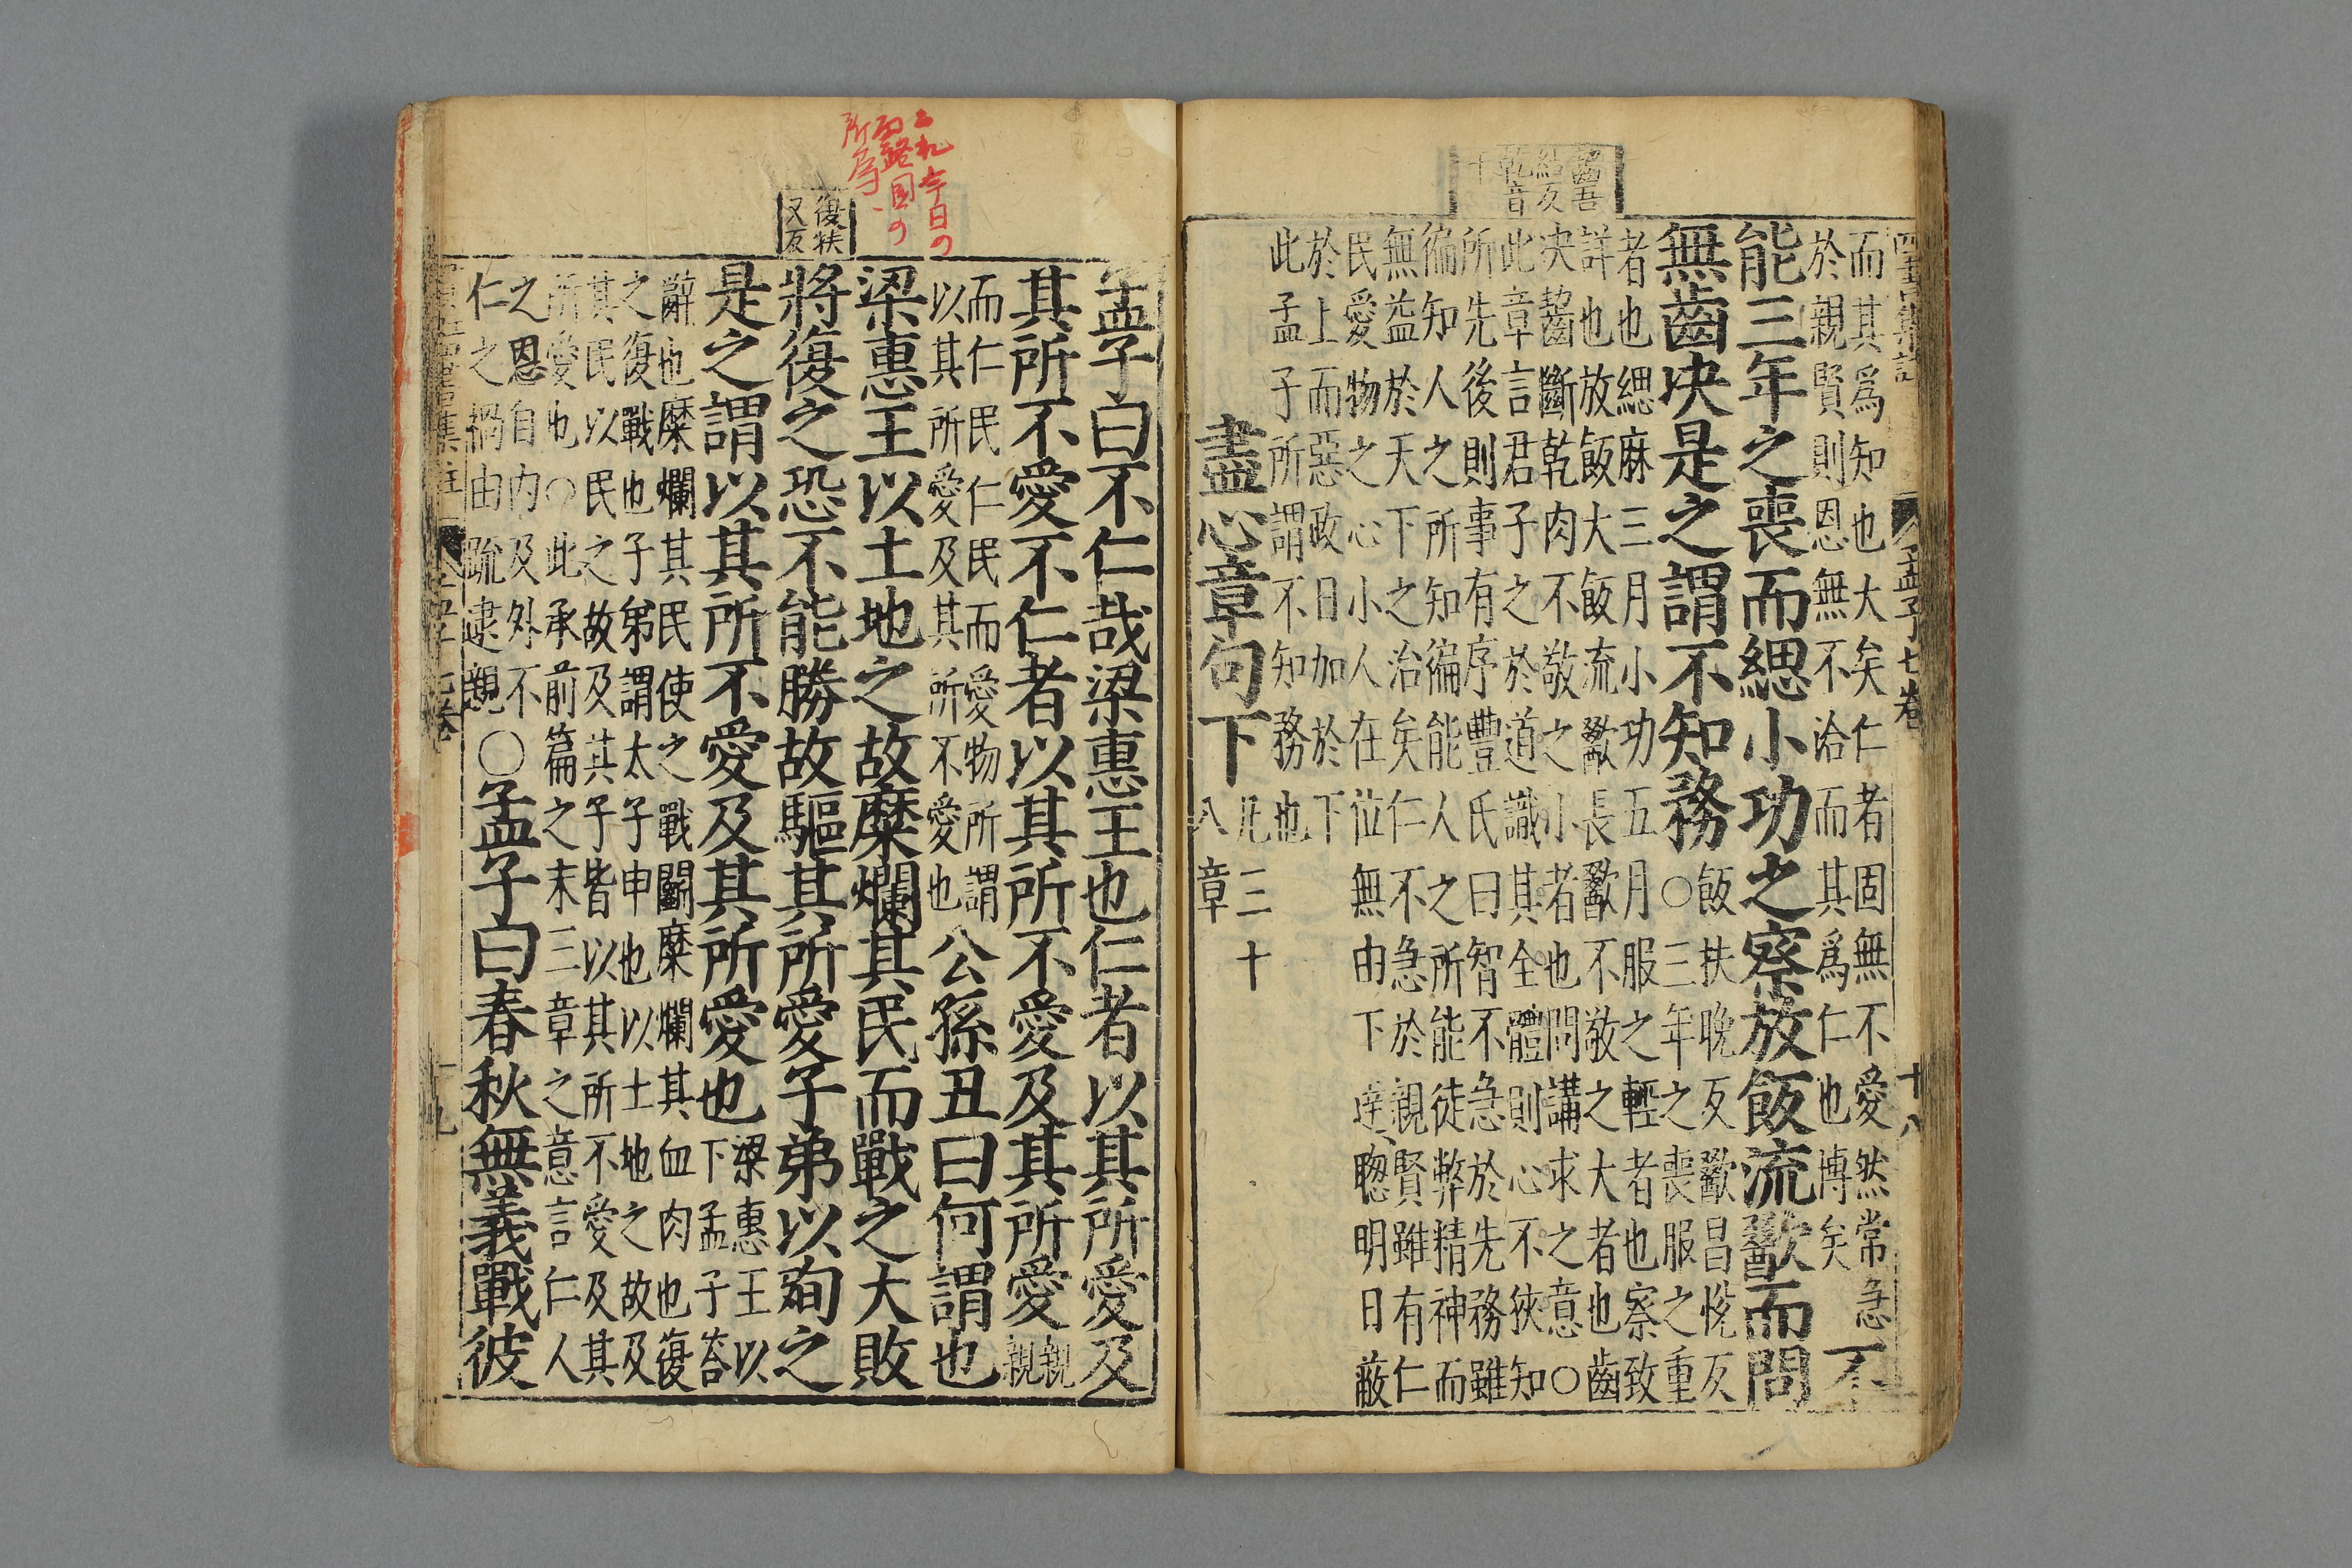 四書集註 孟子七卷 十八
齧吾
結反
乾音
干
而其爲知也大矣仁者固無不愛然常急
於親賢則恩無不洽而其爲仁也博矣
不
能三年之喪而緦小功之察放飯流歠而問
無齒决是之謂不知務
飯扶晚反歠昌悅反
○三年之喪服之重
者也緦麻三月小功五月服之輕者也察致
詳也放飯大飯流歠長歠不敬之大者也齒
决齧斷乾肉不敬之小者也問講求之意○
此章言君子之於道識其全體則心不狹知
所先後則事有序豐氏曰智不急於先務雖
徧知人之所知徧能人之所能徒弊精神而
無益於天下之治矣仁不急於親賢雖有仁
民愛物之心小人在位無由下達聦明日蔽
於上而惡政日加於下
此孟子所謂不知務也
盡心章句下
凡三十
八章
これ今日の
露国の
所為、
復扶
又反
孟子曰不仁哉梁惠王也仁者以其所愛及
其所不愛不仁者以其所不愛及其所愛
親親
而仁民仁民而愛物所謂
以其所愛及其所不愛也
公孫丑曰何謂也
梁惠王以土地之故糜爛其民而戰之大敗
將復之恐不能勝故驅其所愛子弟以殉之
是之謂以其所不愛及其所愛也
梁惠王以
下孟子荅
辭也糜爛其民使之戰鬬糜爛其血肉也復
之復戰也子弟謂太子申也以土地之故及
其民以民之故及其子皆以其所不愛及其
所愛也○此承前篇之末三章之意言仁人
之恩自內及外不
仁之禍由疏逮親
○孟子曰春秋無義戰彼